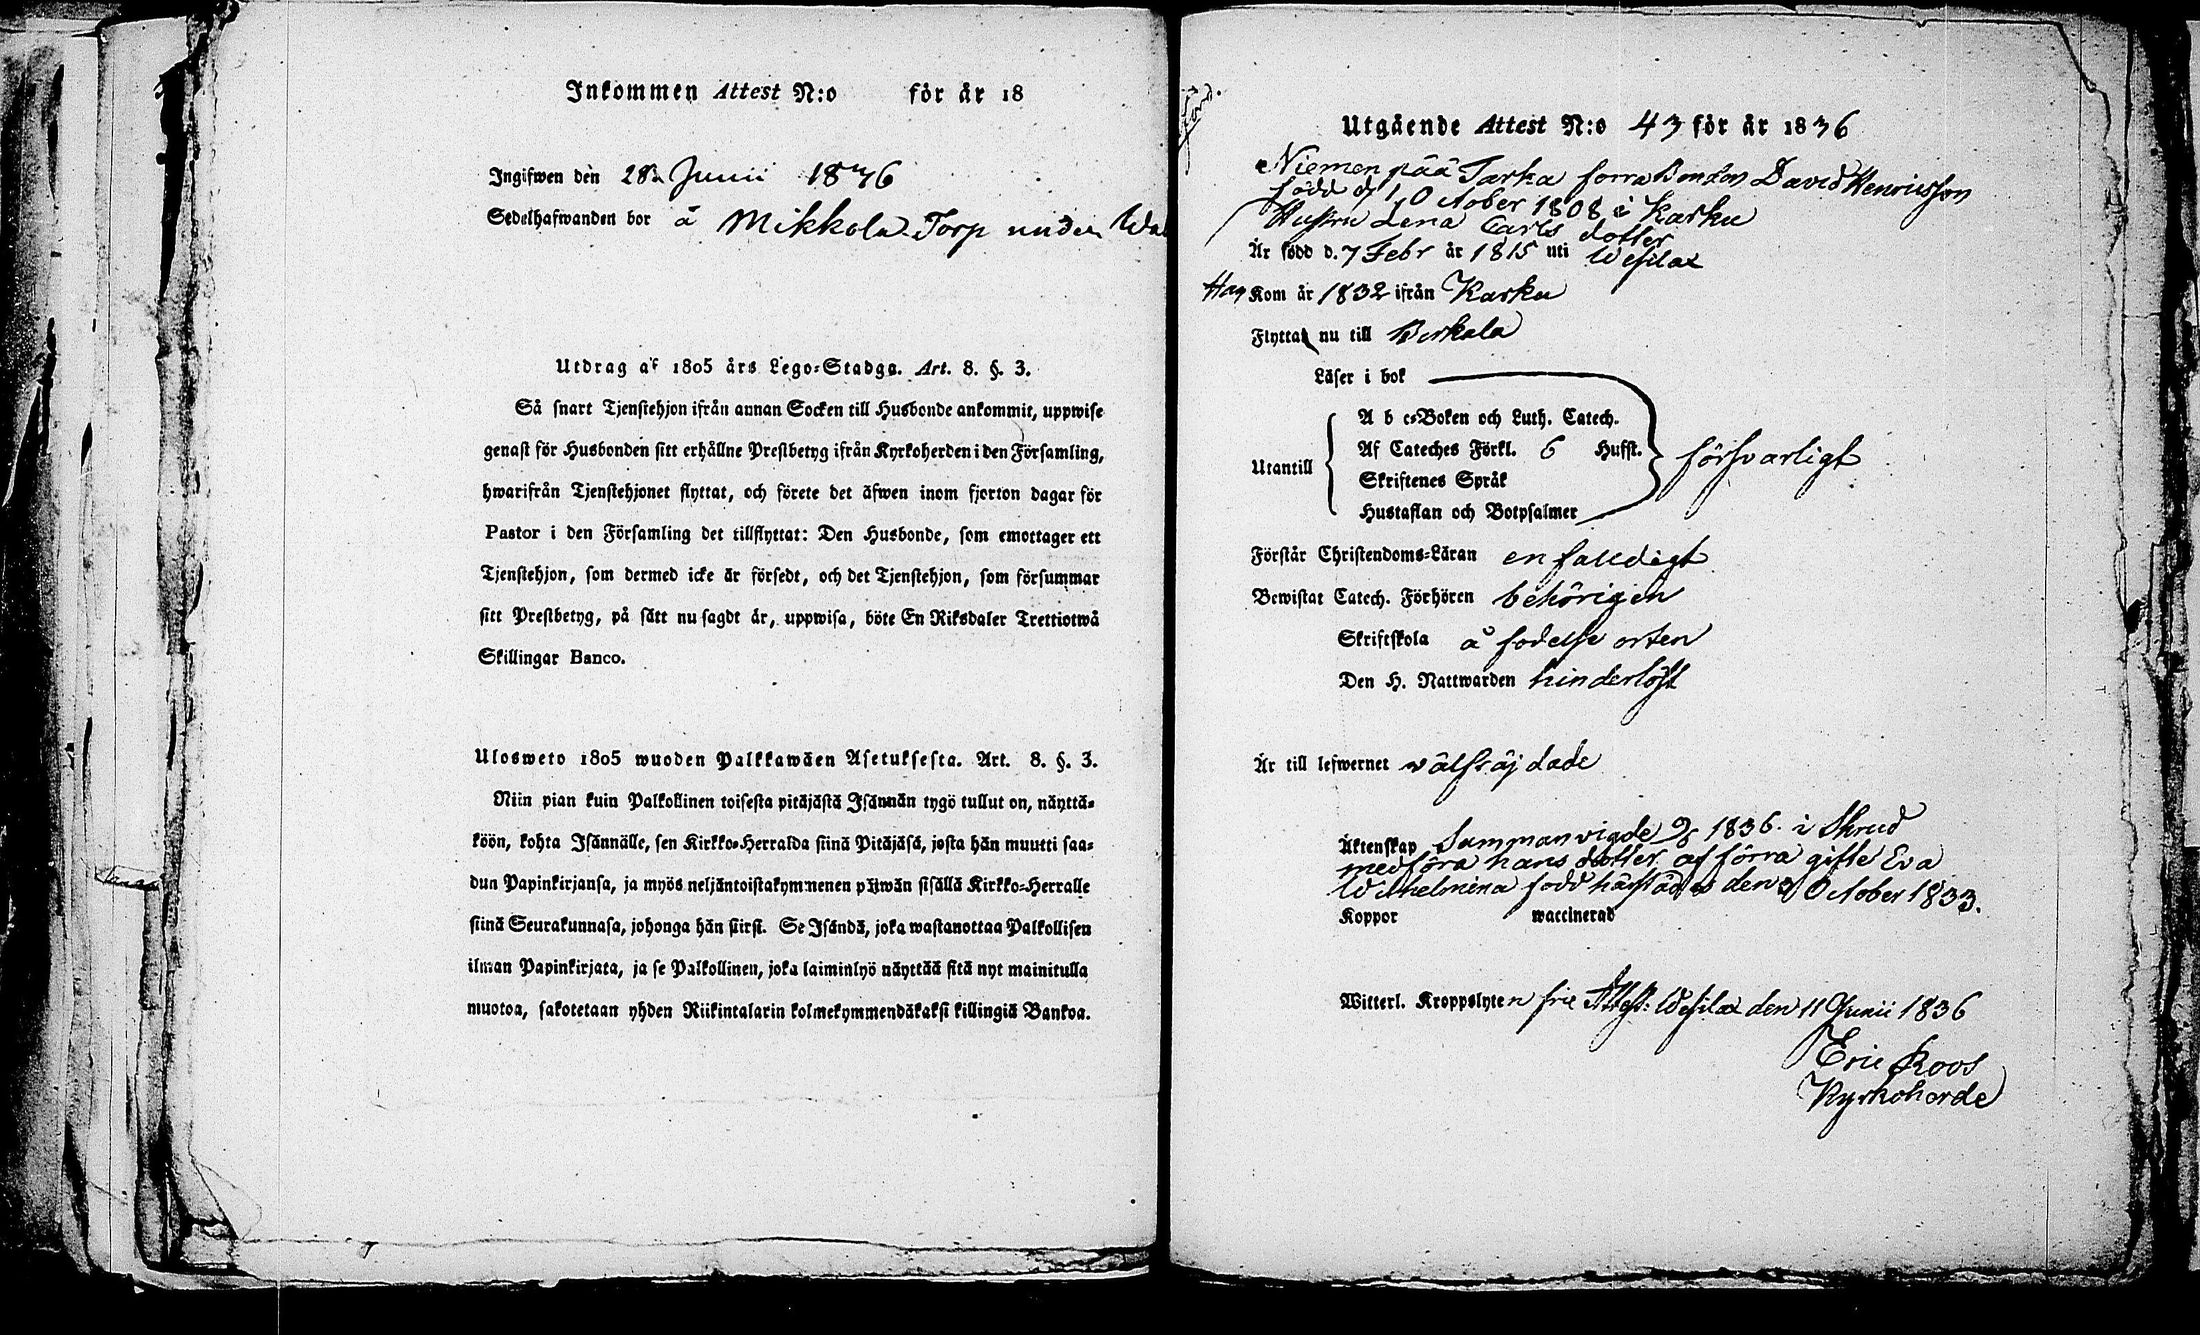 Inkommen Attest N:o för år 18
Ingifwen den 28 Junii 1836
Sedelhafwanden bor å Mikkola Torp under
Utdrag af 1805 års Lego-Stadga. Art. 8. §. 3.
Så snart Tjenstehjon ifrån annan Socken till Husbonde ankommit, uppwise
genast för Husbonden sitt erhållne Prestbetyg ifrån Kyrkoherden i den Församling,
hwarifrån Tjenstehjonet flyttat, och förete det äfwen inom fjorton dagar för
Pastor i den Församling det tillflyttat: Den Husbonde, som emottager ett
Tjenstehjon, som dermed icke är försedt, och det Tjenstehjon, som försummar
sitt Prestbetyg, på sätt nu sagdt är, uppwisa, böte En Riksdaler Trettiotwå
Skillingar Banco.
Ulosweto 1805 wuoden Palkkawäen Asetuksesta. Art. 8. §. 3.
Niin pian kuin Palkollinen toisesta pitäjästä Isännän tygö tullut on, näyttä-
köön, kohta Isännälle, sen Kirkko-Herralda siinä Pitäjäsä, josta hän muutti saa-
dun Papinkirjansa, ja myös neljäntoistakymmenen päiwän sisällä Kirkko-Herralle
siinä Seurakunnasa, johonga hän siirst. Se Isändä, joka wastanottaa Palkollisen
ilman Papinkirjata, ja se Palkollinen, joka laiminlyö näyttää sitä nyt mainitulla
muotoa, sakotetaan yhden Riikintalarin kolmekymmendäkaksi killingiä Bankoa.
Utgående Attest N:o 43 för år 1836
Niemenpää Tarka förra Bonden David Henricsson
född d 1 October 1808 i Karku
Hustru Lena Carls dotter
Är född d. 7 Febr år 1815 uti Wesilax
Han Kom år 1832 ifrån Karku
Flytta nu till Birkala
Läser i bok
A b c-Boken och Luth. Catech.
Utantill Af Cateches Förkl. 6 Hufst. försvarligt
Skriftenes Språk
Hustaflan och Botpsalmer
Förstår Christendoms-Läran enfalldigt
Bewistat Catech. Förhören behörigen
Skriftskola å fodelse orten
Den H. Nattwarden hinderlöst
Är till lefwernet välfräjdade
Äktenskap Sammanvigde 1836. i
medföra hans dotter af förra gifte Eva
Wilhelmina född härstädes den October 1833.
Koppor waccinerad
Witterl. Kroppslyten frie Attest: Wesilax den 11 Junii 1836
Eric Roos
Kyrkoherde